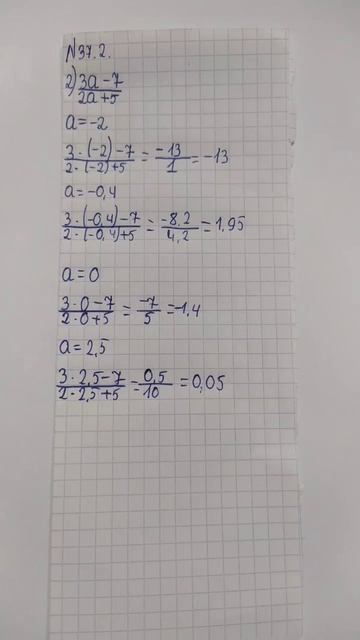 N37.2.
2) (3a-7)/(2a+5)
a=-2
(3·(-2)-7)/(2·(-2)+5) = (-13)/1 = -13
a=-0,4
(3·(-0,4)-7)/(2·(-0,4)+5) = (-8,2)/(4,2) = 1,95
a=0
(3·0-7)/(2·0+5) = (-7)/5 = -1,4
a=2,5
(3·2,5-7)/(2·2,5+5) = (0,5)/10 = 0,05